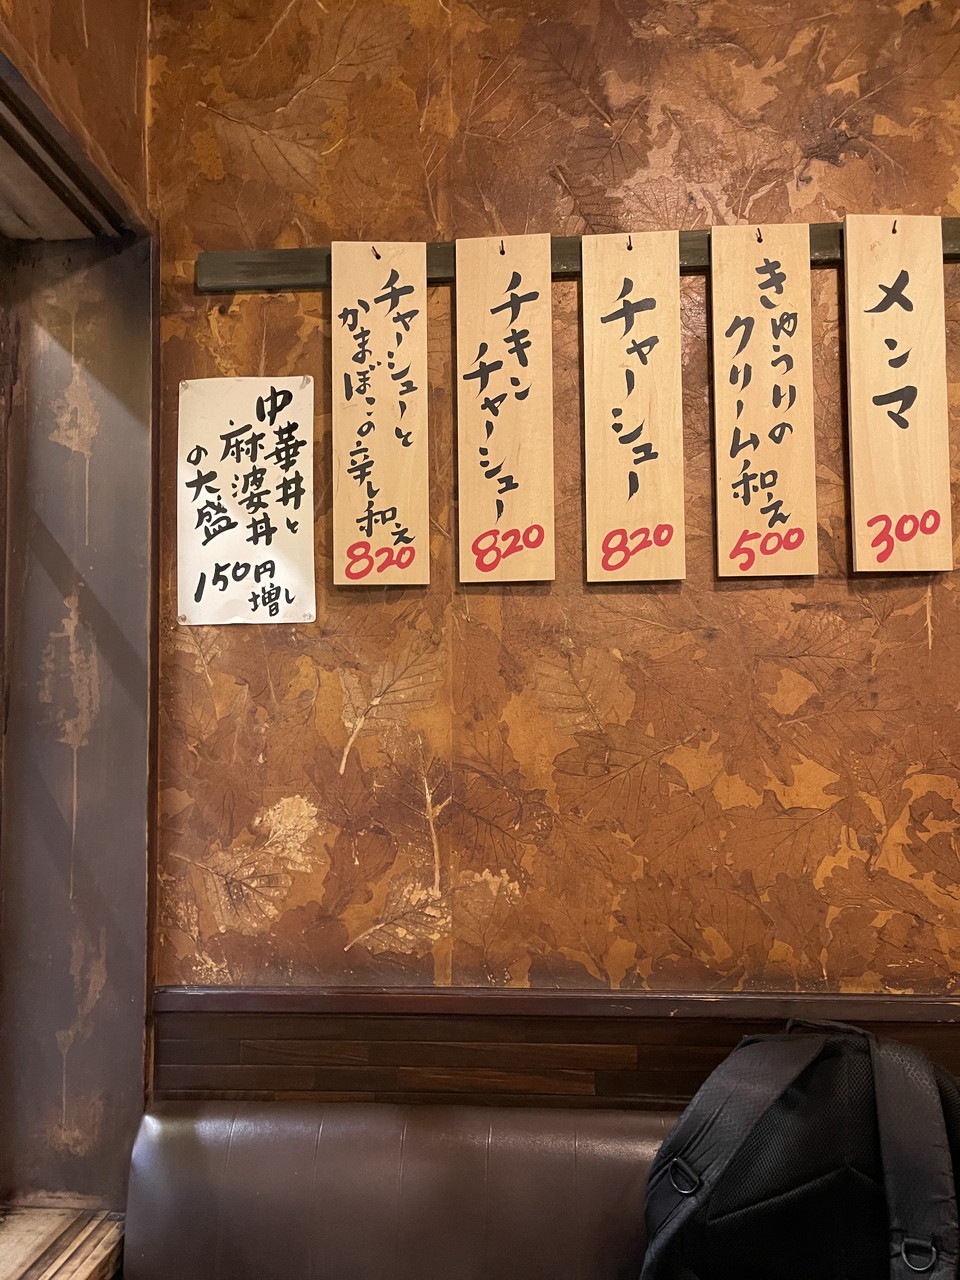 メンマ
300
きゅうりの
クリーム和え
500
チャーシュー
820
チキン
チャーシュー
820
チャーシューと
かまぼこの辛し和え
820
中華丼と
麻婆丼
の大盛
150円
増し